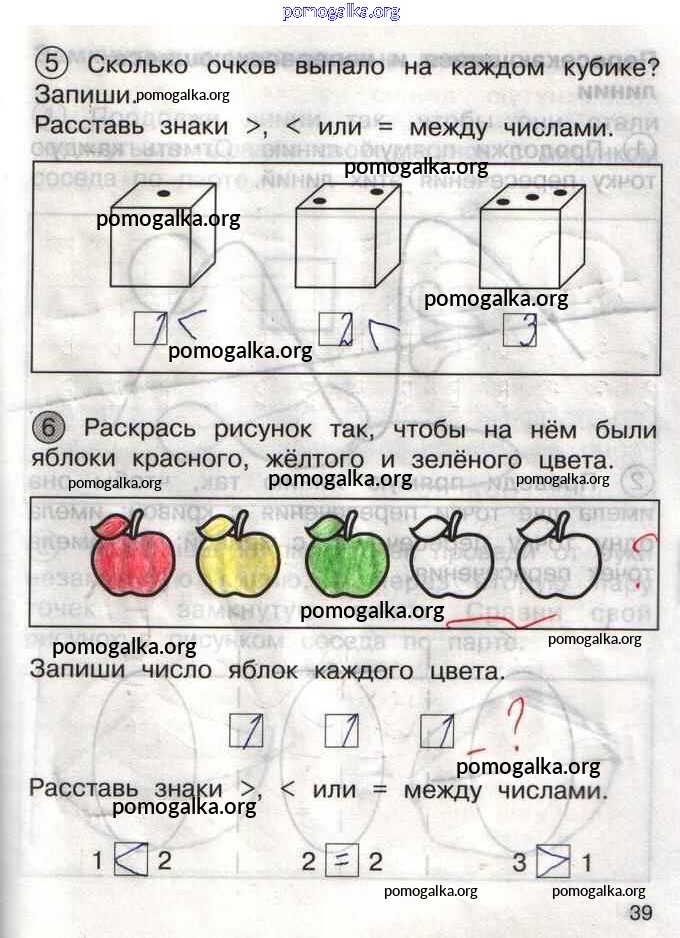 pomogalka.org
5 Сколько очков выпало на каждом кубике?
Запиши. pomogalka.org
Расставь знаки >, < или = между числами.
pomogalka.org
pomogalka.org
pomogalka.org
1 < 2 < 3
pomogalka.org
6 Раскрась рисунок так, чтобы на нём были
яблоки красного, жёлтого и зелёного цвета.
pomogalka.org pomogalka.org pomogalka.org
?
pomogalka.org
pomogalka.org pomogalka.org
Запиши число яблок каждого цвета.
1 1 1 - ?
pomogalka.org
Расставь знаки >, < или = между числами.
pomogalka.org
1 < 2 2 = 2 3 > 1
pomogalka.org pomogalka.org
39